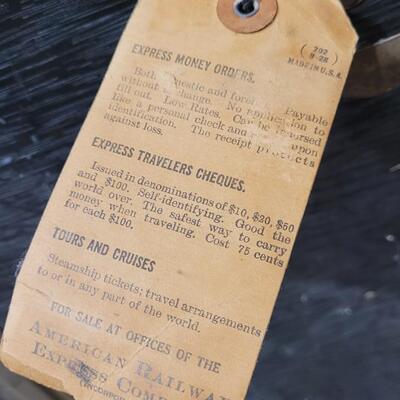 ( 202
9-28 )
MADE IN U.S.A.
EXPRESS MONEY ORDERS.
Both domestic and foreign. Payable
without exchange. No application to
fill out. Low Rates. Can be
like a personal check and upon
identification. The receipt
against loss.
EXPRESS TRAVELERS CHEQUES.
Issued in denominations of $10, $20, $50
and $100. Self-identifying. Good the
world over. The safest way to carry
money when traveling. Cost 75 cents
for each $100.
TOURS AND CRUISES
Steamship tickets; travel arrangements
to or in any part of the world.
FOR SALE AT OFFICES OF THE
AMERICAN RAILWAY
EXPRESS COMP
(INCORPOR